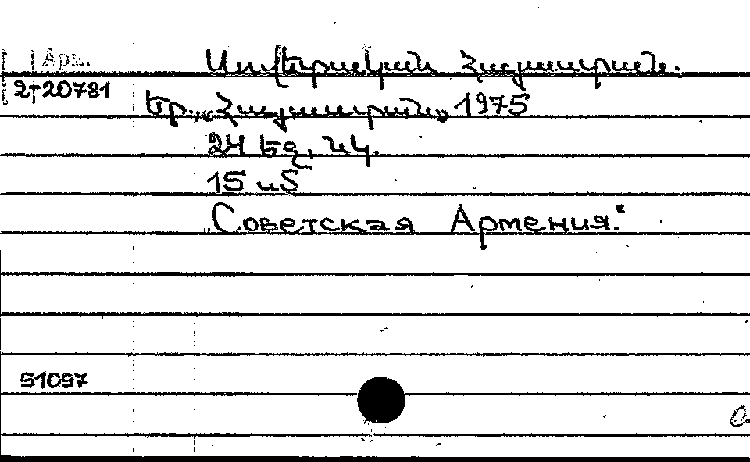 Арм.
Սովետական Հայաստան.
2-20781
Եր., «Հայաստան», 1975
24 եզ. նկ.
15 սմ
Советская Армения."
51097